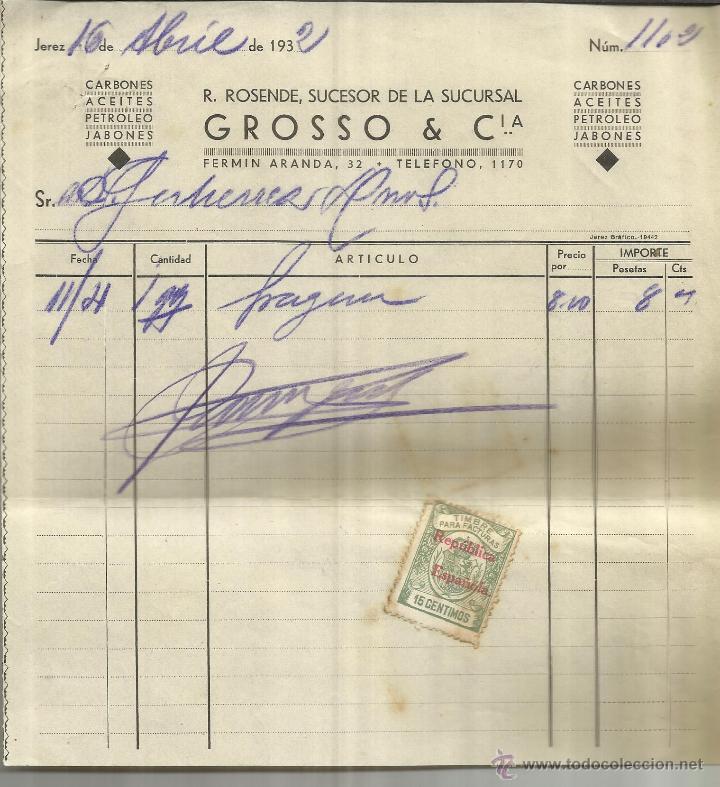 Jerez 16 de Abril de 1932 Núm. 1102
CARBONES
ACEITES
PETROLEO
JABONES
R. ROSENDE, SUCESOR DE LA SUCURSAL
GROSSO & CIA
FERMIN ARANDA, 32 + TELEFONO, 1170
CARBONES
ACEITES
PETROLEO
JABONES
Sr.
Jerez Gráfico.-19442
Fecha Cantidad ARTICULO Precio por IMPORTE
Pesetas Cts
11/4 1 8.00 8
TIMBRE
PARA FACTURAS
República
Española
15 CENTIMOS
www.todocoleccion.net